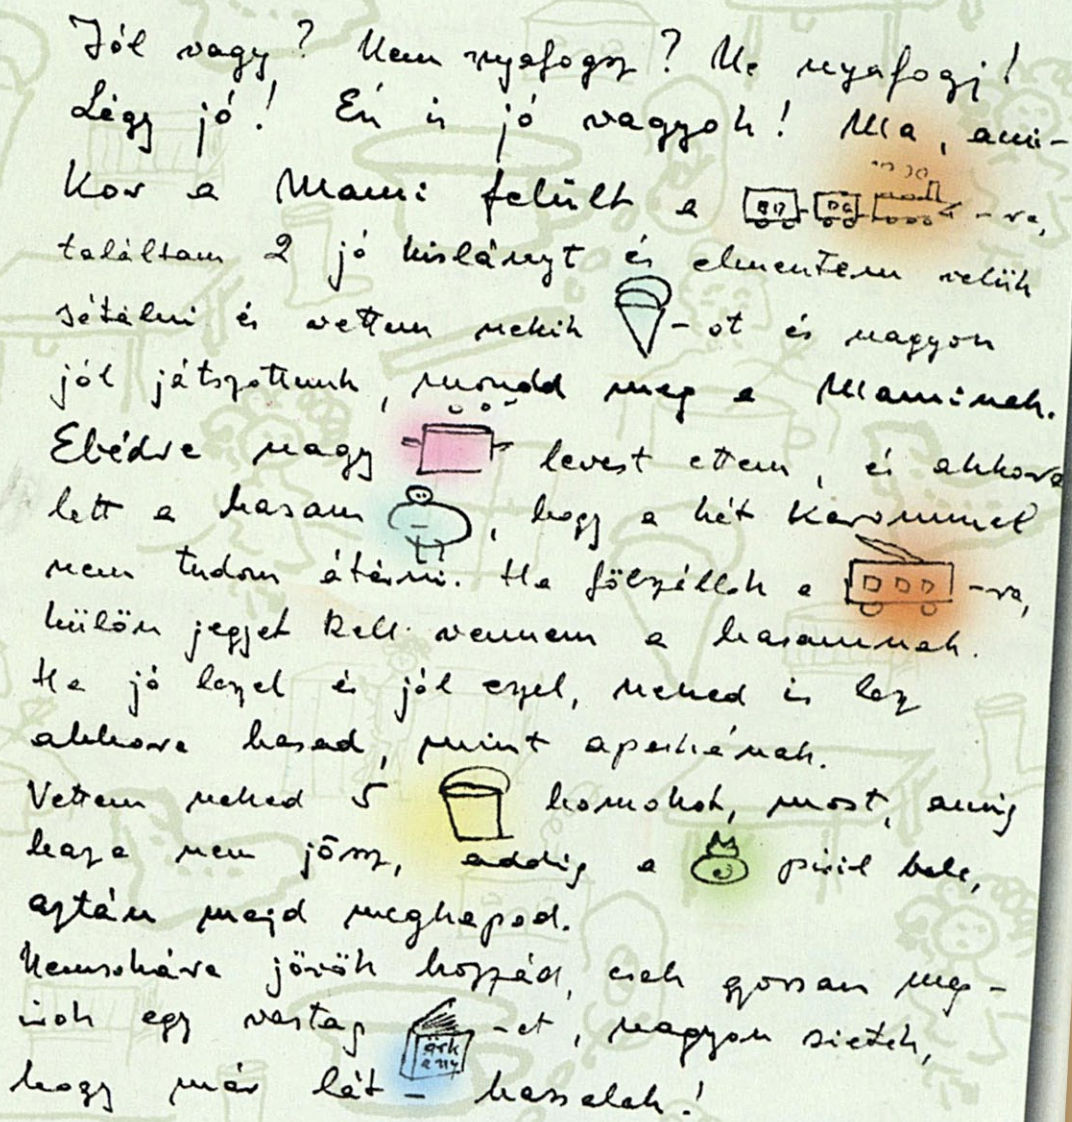 Jól vagy? Nem nyafogsz? Ne nyafogj!
Légy jó! Én is jó vagyok! Ma, ami-
kor a Mami felült a -ra,
találtam 2 jó kislányt és elmentem velük
sétálni és vettem nekik -ot és nagyon
jól játszottunk, mondd meg a Maminak.
Ebédre nagy levest ettem, és akkora
lett a hasam, hogy a két karommal
nem tudom átérni. Ha fölszállok a -ra,
külön jegyet kell vennem a hasamnak.
Ha jó leszel és jól eszel, neked is lesz
akkora hasad, mint apukának.
Vettem neked 5 homokot, most, amíg
haza nem jössz, addig a pisil bele,
aztán majd megkapod.
Nemsokára jövök hozzád, csak gyorsan meg-
írok egy vastag -et, nagyon sietek,
hogy már lát-hassalak!